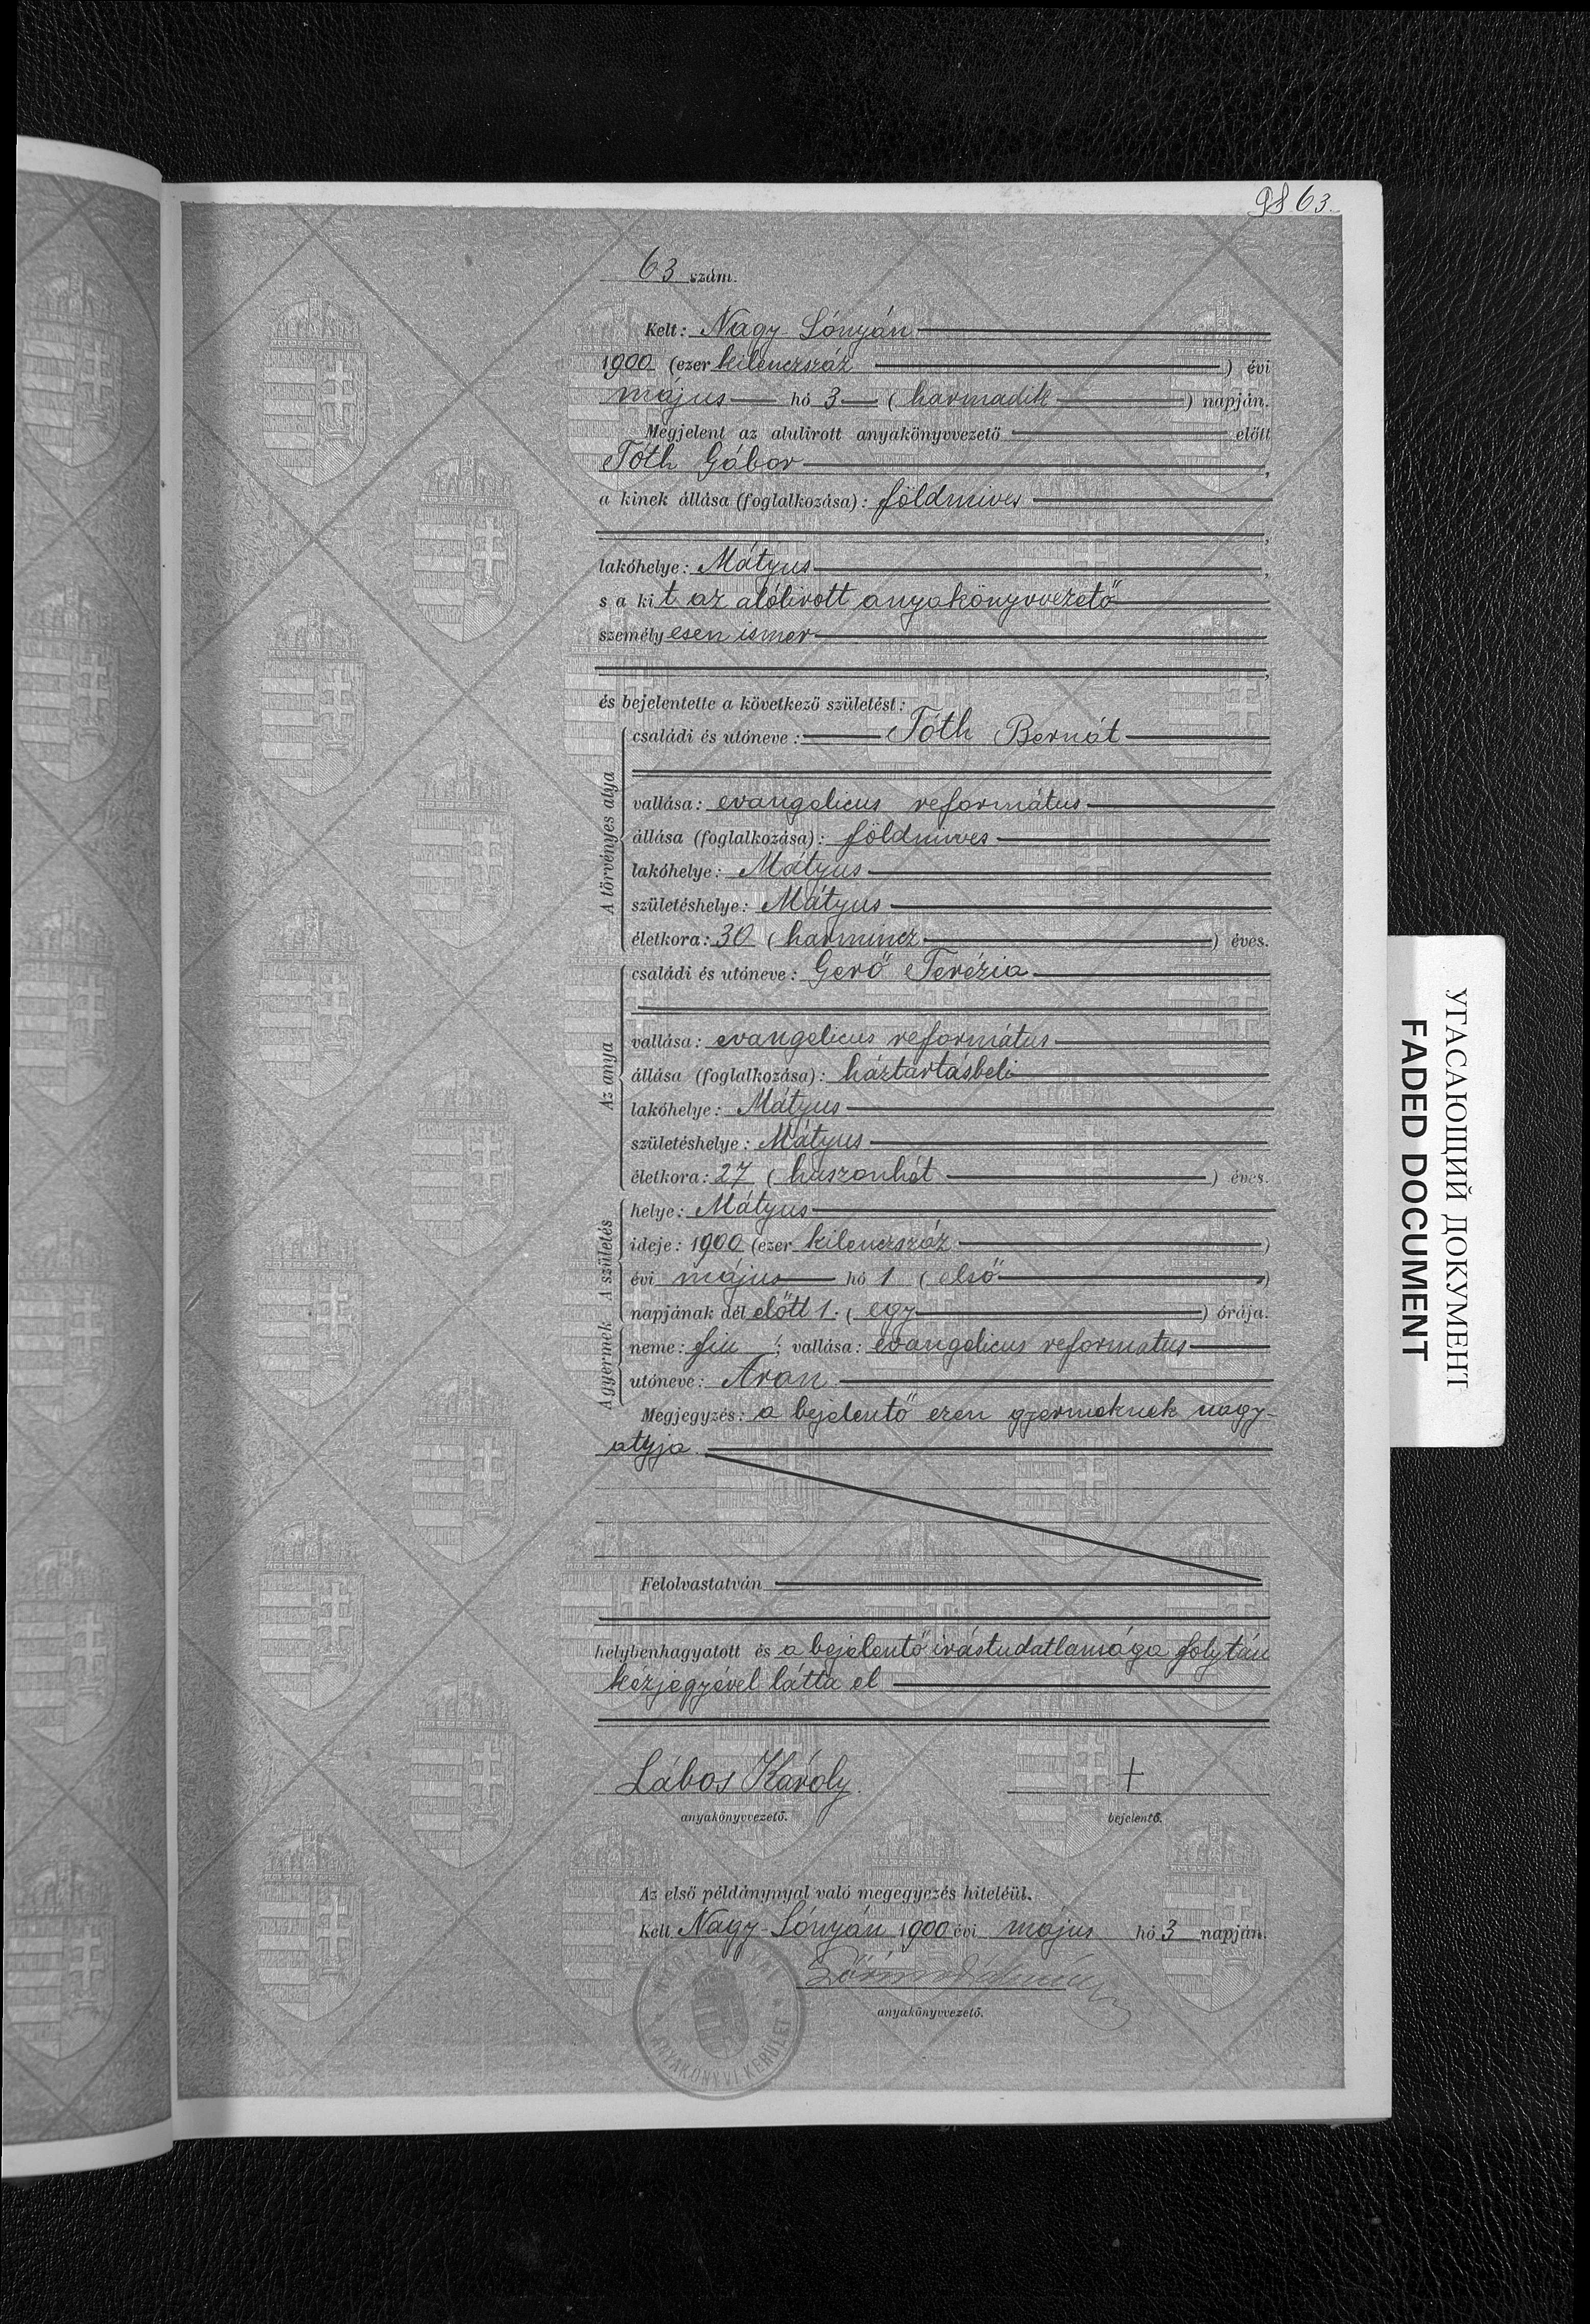 98 63.
63 szám.
Kelt: Nagy-Lónyán
1900 (ezer kilenczszáz) évi
május hó 3 (harmadik) napján.
Megjelent az alulirott anyakönyvvezető előtt
Tóth Gábor,
a kinek állása (foglalkozása): földmives
,
lakóhelye: Mátyus,
s a kit az alólirott anyakönyvvezető
személyesen ismer
,
és bejelentette a következő születést:
A törvényes atyja
családi és utóneve: Tóth Bernát
vallása: evangelicus református
állása (foglalkozása): földmives
lakóhelye: Mátyus
születéshelye: Mátyus
életkora: 30 (harmincz) éves.
Az anya
családi és utóneve: Gerő Terézia
vallása: evangelicus református
állása (foglalkozása): háztartásbeli
lakóhelye: Mátyus
születéshelye: Mátyus
életkora: 27 (huszonhét) éves.
A születés
helye: Mátyus
ideje: 1900 (ezer kilenczszáz)
évi május hó 1 (első)
napjának dél előtt 1. (egy) órája.
A gyermek
neme: fiu; vallása: evangelicus reformatus
utóneve: Áron
Megjegyzés: a bejelentő ezen gyermeknek nagy-
atyja.
Felolvastatván
helybenhagyatott és a bejelentő irástudatlansága folytán
kézjegyével látta el
Lábos Károly. +
anyakönyvvezető. bejelentő.
Az első példánynyal való megegyezés hiteléül.
Kelt Nagy-Lónyán 1900 évi május hó 3 napján.
anyakönyvvezető.
ANYAKÖNYVI KERÜLET
УГАСАЮЩИЙ ДОКУМЕНТ
FADED DOCUMENT